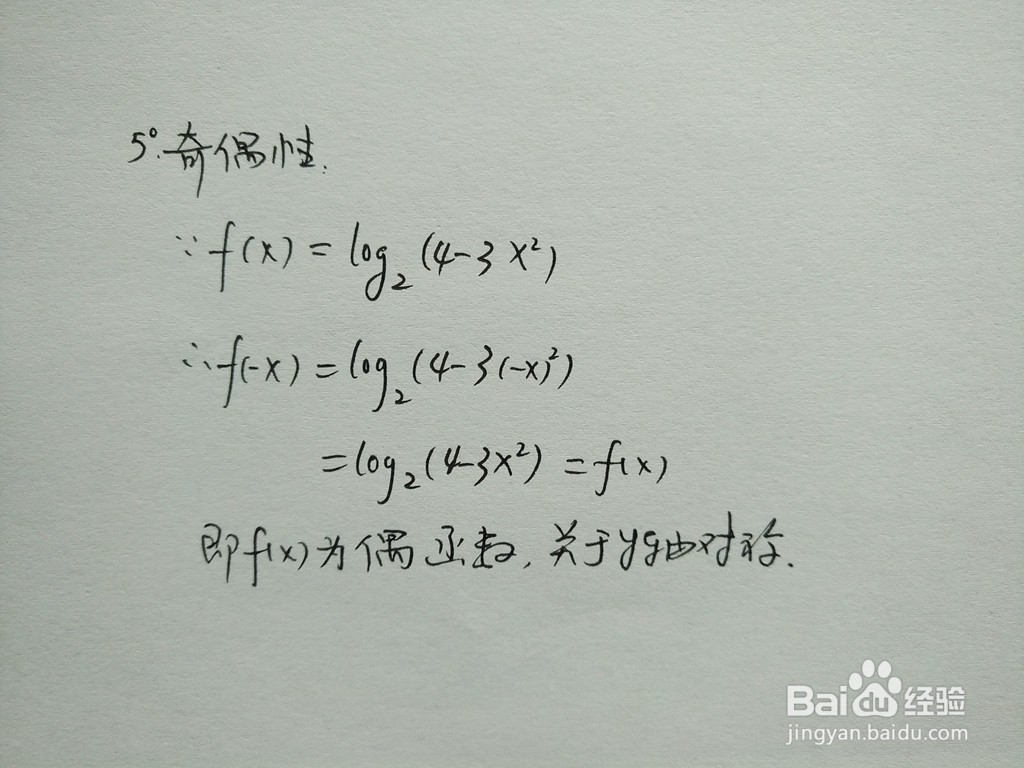 5°.奇偶性.
∵f(x) = log₂(4-3x²)
∴f(-x) = log₂(4-3(-x)²)
=log₂(4-3x²) =f(x)
即f(x)为偶函数,关于y轴对称.
Baidu经验
jingyan.baidu.com